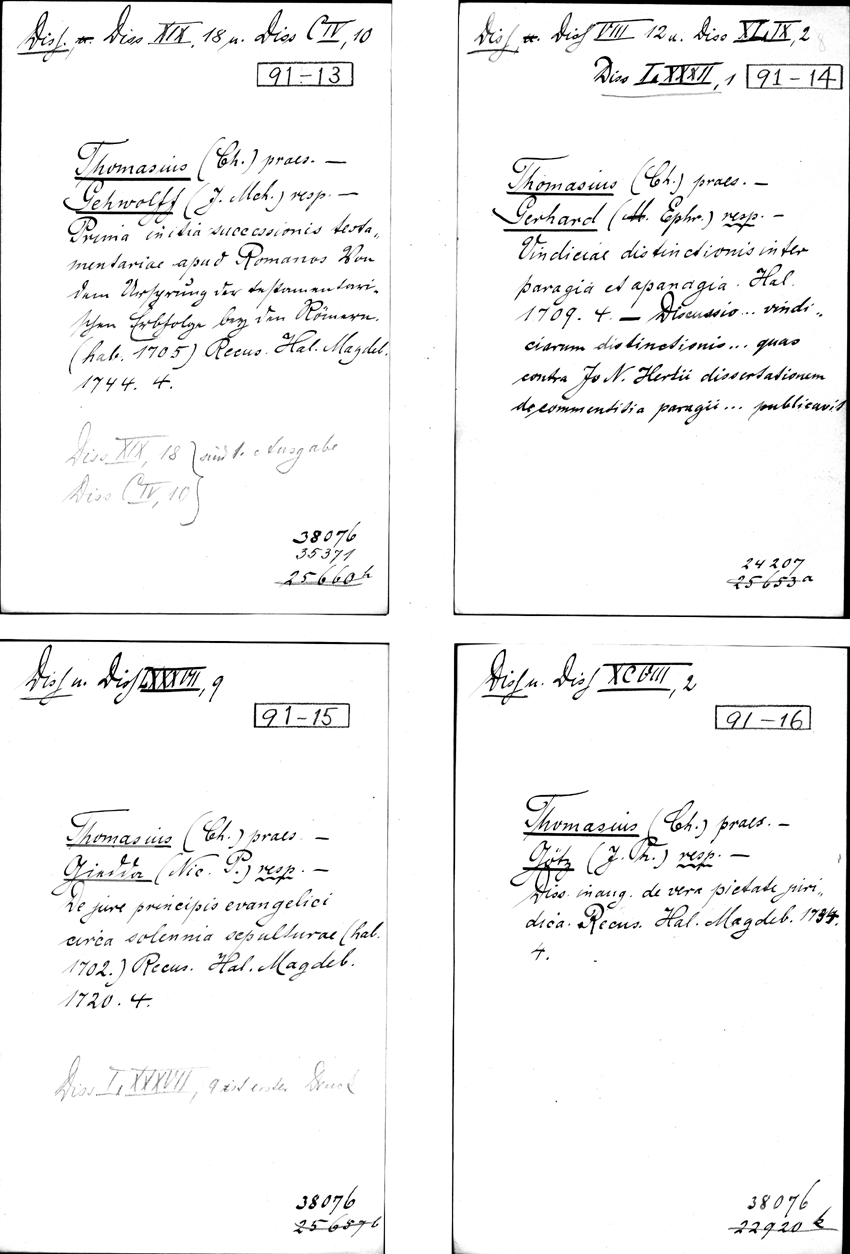 Diss. u. Diss XIX, 18 u. Diss CIV, 10
91-13
Thomasius (Ch.) praes. —
Gehwolff (J. Mch.) resp. —
Primia initia successionis testa„
mentariae apud Romanos Von
dem Ursprung der testamentari-
schen Erbfolge bey den Römern.
(hab. 1705) Recus. Hal. Magdeb.
1744. 4.
Diss XIX, 18
sind 1. Ausgabe
Diss CIV, 10
38076
35371
25660h
Diss, u. Diss VIII 12 u. Diss XLIX, 2
Diss LXXXII, 1 91-14
Thomasius (Ch.) praes. —
Gerhard (M. Ephr.) resp. —
Vindiciae distinctionis inter
paragia et apanagia. Hal.
1709. 4. — Discussio... vindi„
ciarum distinctionis... quas
contra Jo N. Hertii dissertationem
de commentitia paragii... publicavit
24207
25653a
Diss u. Diss LXXXVII, 9
91-15
Thomasius (Ch.) praes. —
(Nic. P.) resp. —
De jure principis evangelici
circa solennia sepulturae (hab.
1702.) Recus. Hal. Magdeb.
1720. 4.
Diss LXXXVII, 9 ist erster Druck
38076
25657b
Diss u. Diss XCVIII, 2
91-16
Thomasius (Ch.) praes. —
Götz (J. Ph.) resp. —
Diss. inaug. de vera pietate juri„
dica. Recus. Hal. Magdeb. 1734.
4.
38076
22920k